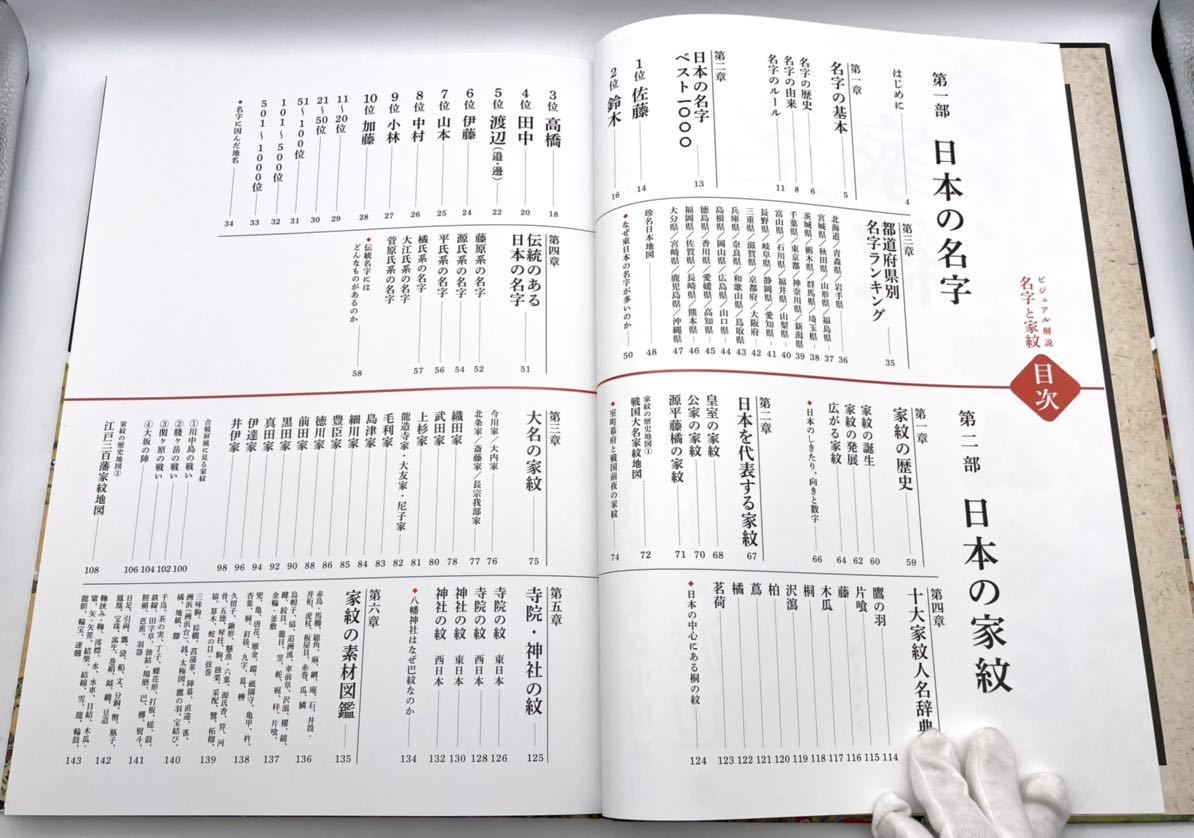 ビジュアル解説
名字と家紋
目次
第一部 日本の名字
はじめに 4
第一章
名字の基本 5
名字の歴史 6
名字の由来 8
名字のルール 11
第二章
日本の名字
ベスト一〇〇〇 13
1位 佐藤 14
2位 鈴木 16
3位 高橋 18
4位 田中 20
5位 渡辺(邉・邊) 22
6位 伊藤 24
7位 山本 25
8位 中村 26
9位 小林 27
10位 加藤 28
11〜20位 29
21〜50位 30
51〜100位 31
101〜500位 32
501〜1000位 33
◆名字に因んだ地名 34
第三章
都道府県別
名字ランキング 35
北海道/青森県/岩手県 36
宮城県/秋田県/山形県/福島県 37
茨城県/栃木県/群馬県/埼玉県 38
千葉県/東京都/神奈川県/新潟県 39
富山県/石川県/福井県/山梨県 40
長野県/岐阜県/静岡県/愛知県 41
三重県/滋賀県/京都府/大阪府 42
兵庫県/奈良県/和歌山県/鳥取県 43
島根県/岡山県/広島県/山口県 44
徳島県/香川県/愛媛県/高知県 45
福岡県/佐賀県/長崎県/熊本県 46
大分県/宮崎県/鹿児島県/沖縄県 47
珍名日本地図 48
◆なぜ東日本の名字が多いのか 50
第四章
伝統のある
日本の名字 51
藤原系の名字 52
源氏系の名字 54
平氏系の名字 56
橘氏系の名字 57
大江氏系の名字
菅原氏系の名字
◆伝統名字には
どんなものがあるのか 58
第二部 日本の家紋
第一章
家紋の歴史 59
家紋の誕生 60
家紋の発展 62
広がる家紋 64
◆日本のしきたり、向きと数字 66
第二章
日本を代表する家紋 67
皇室の家紋 68
公家の家紋 70
源平藤橘の家紋 71
家紋の歴史地図①
戦国大名家紋地図 72
◆室町幕府と戦国前夜の家紋 74
第三章
大名の家紋 75
今川家/大内家 76
北条家/斎藤家/長宗我部家 77
織田家 78
武田家 80
上杉家 81
龍造寺家・大友家・尼子家 82
毛利家 83
島津家 84
細川家 85
豊臣家 86
徳川家 88
前田家 90
黒田家 92
真田家 94
伊達家 96
井伊家 98
合戦屏風に見る家紋
①川中島の戦い 100
②賤ヶ岳の戦い 102
③関ヶ原の戦い 104
④大坂の陣 106
家紋の歴史地図②
江戸三百藩家紋地図 108
第四章
十大家紋人名辞典
鷹の羽 114
片喰 115
藤 116
木瓜 117
桐 118
沢瀉 119
柏 120
蔦 121
橘 122
茗荷 123
◆日本の中心にある桐の紋 124
第五章
寺院・神社の紋 125
寺院の紋 東日本 126
寺院の紋 西日本 128
神社の紋 東日本 130
神社の紋 西日本 132
◆八幡神社はなぜ巴紋なのか 134
第六章
家紋の素材図鑑 135
136
137
138
139
140
141
142
143